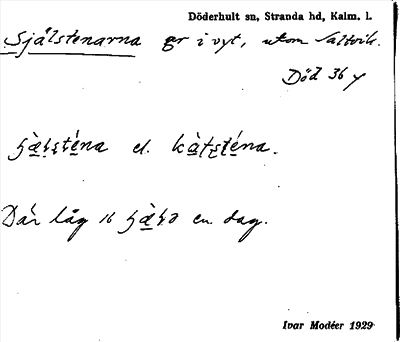 Döderhult sn, Stranda hd, Kalm. l.
Självstenarna gr i vyt, utom Saltvik.
Död 36 y
el.
Där låg 16 en dag.
Ivar Modéer 1929